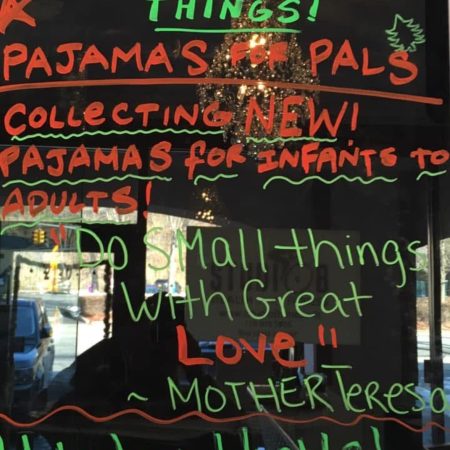 THINGS!
PAJAMAS FOR PALS
COLLECTING NEW!
PAJAMAS for INFANTS TO
ADULTS!
"Do Small things
With Great
Love"
~ MOTHER Teresa